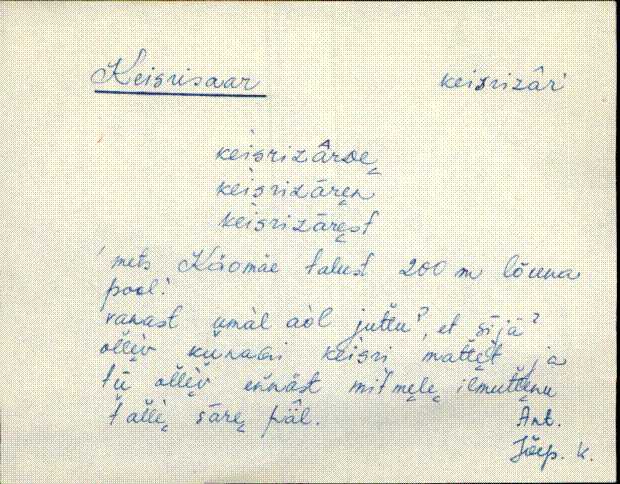 Keisrisaar keisrizâr
keisrizârde̬
keisrizāre̬n
keisrizāre̬st
'mets Käomäe talust 200 m lõuna
pool.'
vanast umàl aòl juttu?, et sījä?
olle̬v kunaGi keisri matte̬t, ja
tū olle̬v ennäst mitme̬le̬ ilmutte̬nu
tälle̬ sāre̬ pǟl. Ant.
Jõep. k.